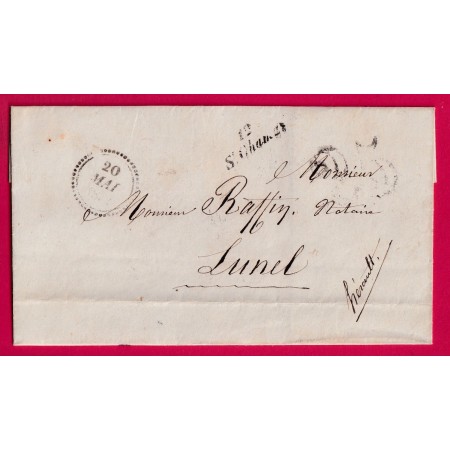 12
St Chamas
20
MAI
Monsieur
Monsieur Raffin, Notaire
Lunel
hérault.